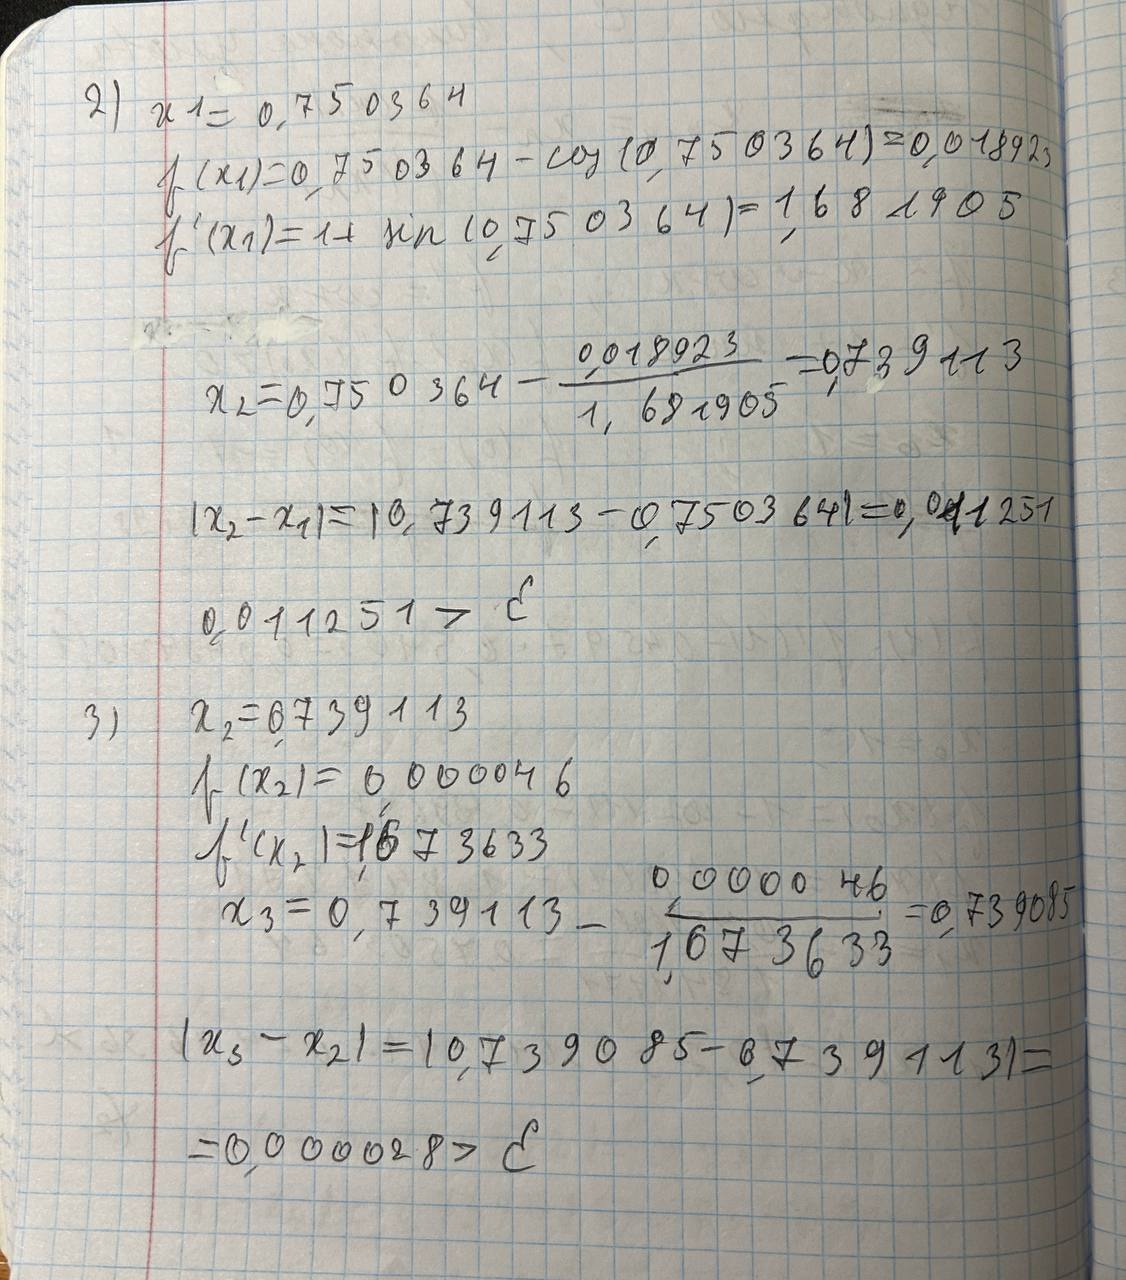 2) x1 = 0,750364
f(x1)=0,750364 - cos(0,750364)=0,018923
f'(x1)=1+ sin(0,750364)=1,681905
x2=0,750364 - 0,018923/1,681905 =0,739113
|x2-x1|=|0,739113-0,750364|=0,011251
0,011251 > ε
3) x2=0,739113
f(x2)= 0,000046
f'(x2)=1,673633
x3=0,739113 - 0,000046/1,673633 =0,739085
|x3 - x2|=|0,739085-0,739113|=
=0,000028> ε